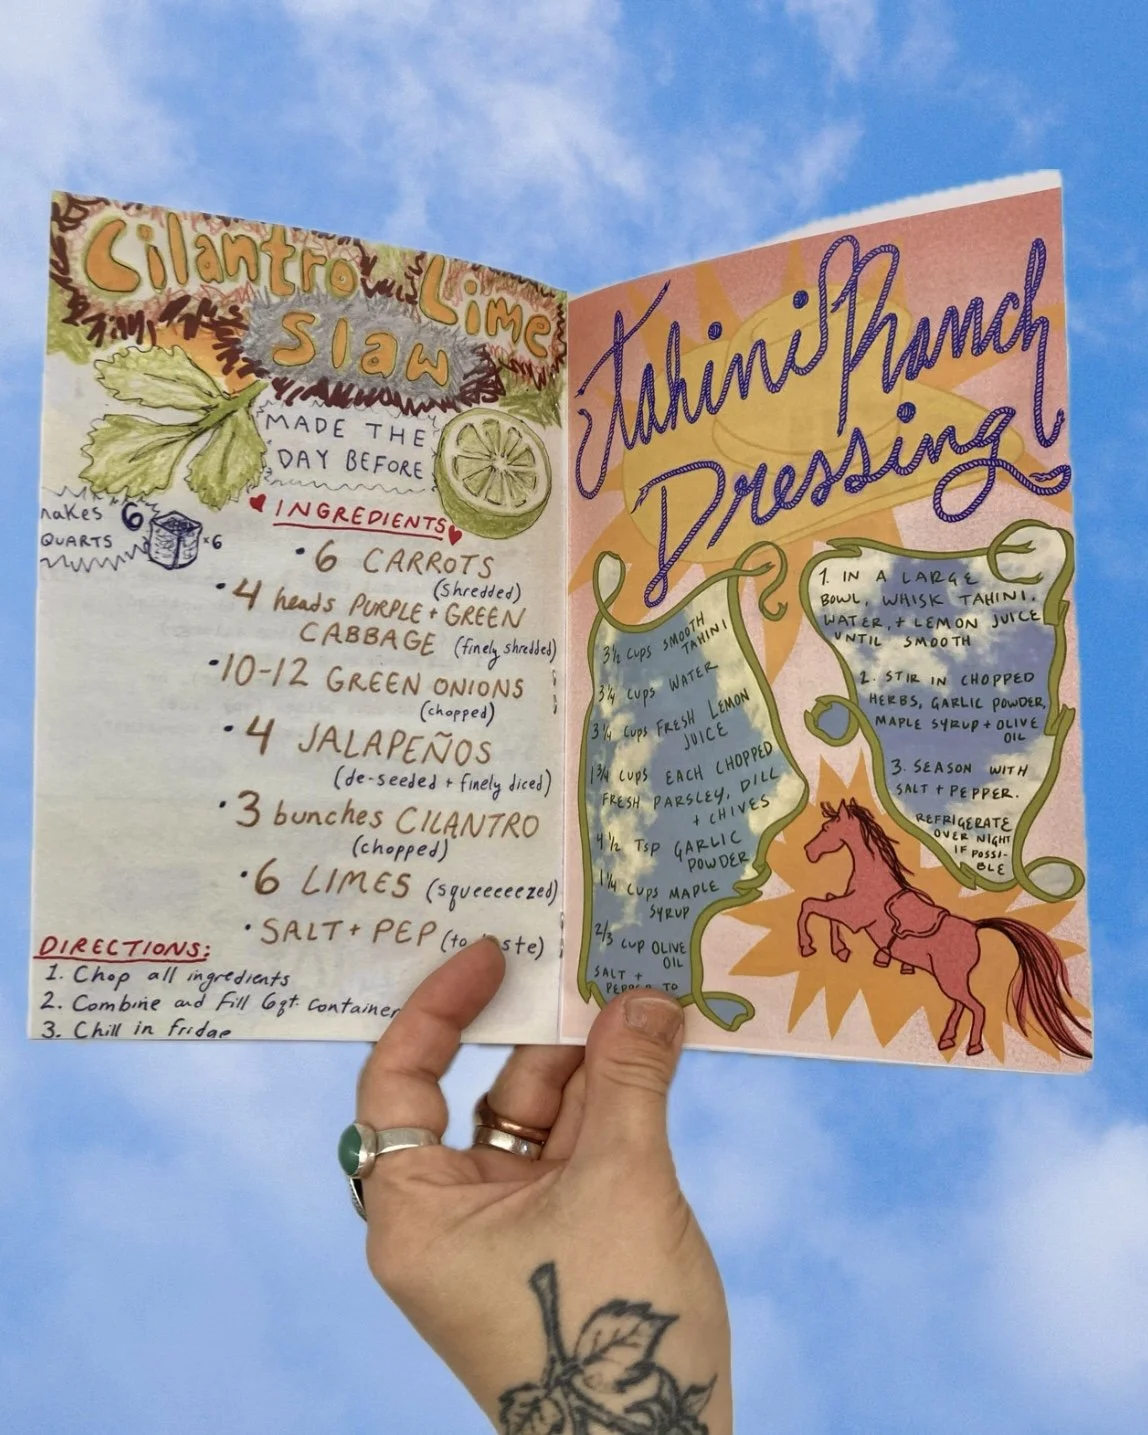 Cilantro Lime
Slaw
MADE THE
DAY BEFORE
makes 6
QUARTS
×6
INGREDIENTS
• 6 CARROTS
(shredded)
• 4 heads PURPLE + GREEN
CABBAGE (finely shredded)
• 10-12 GREEN ONIONS
(chopped)
• 4 JALAPEÑOS
(de-seeded + finely diced)
• 3 bunches CILANTRO
(chopped)
• 6 LIMES (squeeeeezed)
• SALT + PEP (to
DIRECTIONS:
1. Chop all ingredients
2. Combine and Fill 6qt. container
3. Chill in fridge
Tahini Ranch
Dressing
3½ CUPS SMOOTH
TAHINI
CUPS WATER
3¼ CUPS FRESH LEMON
JUICE
1¾ CUPS EACH CHOPPED
FRESH PARSLEY, DILL
+ CHIVES
4½ TSP GARLIC
POWDER
1¼ CUPS MAPLE
SYRUP
2/3 CUP OLIVE
OIL
SALT +
PEPPER TO
1. IN A LARGE
BOWL, WHISK TAHINI,
WATER, + LEMON JUICE
UNTIL SMOOTH
2. STIR IN CHOPPED
HERBS, GARLIC POWDER,
MAPLE SYRUP + OLIVE
OIL
3. SEASON WITH
SALT + PEPPER.
REFRIGERATE
OVER NIGHT
IF POSSI-
BLE